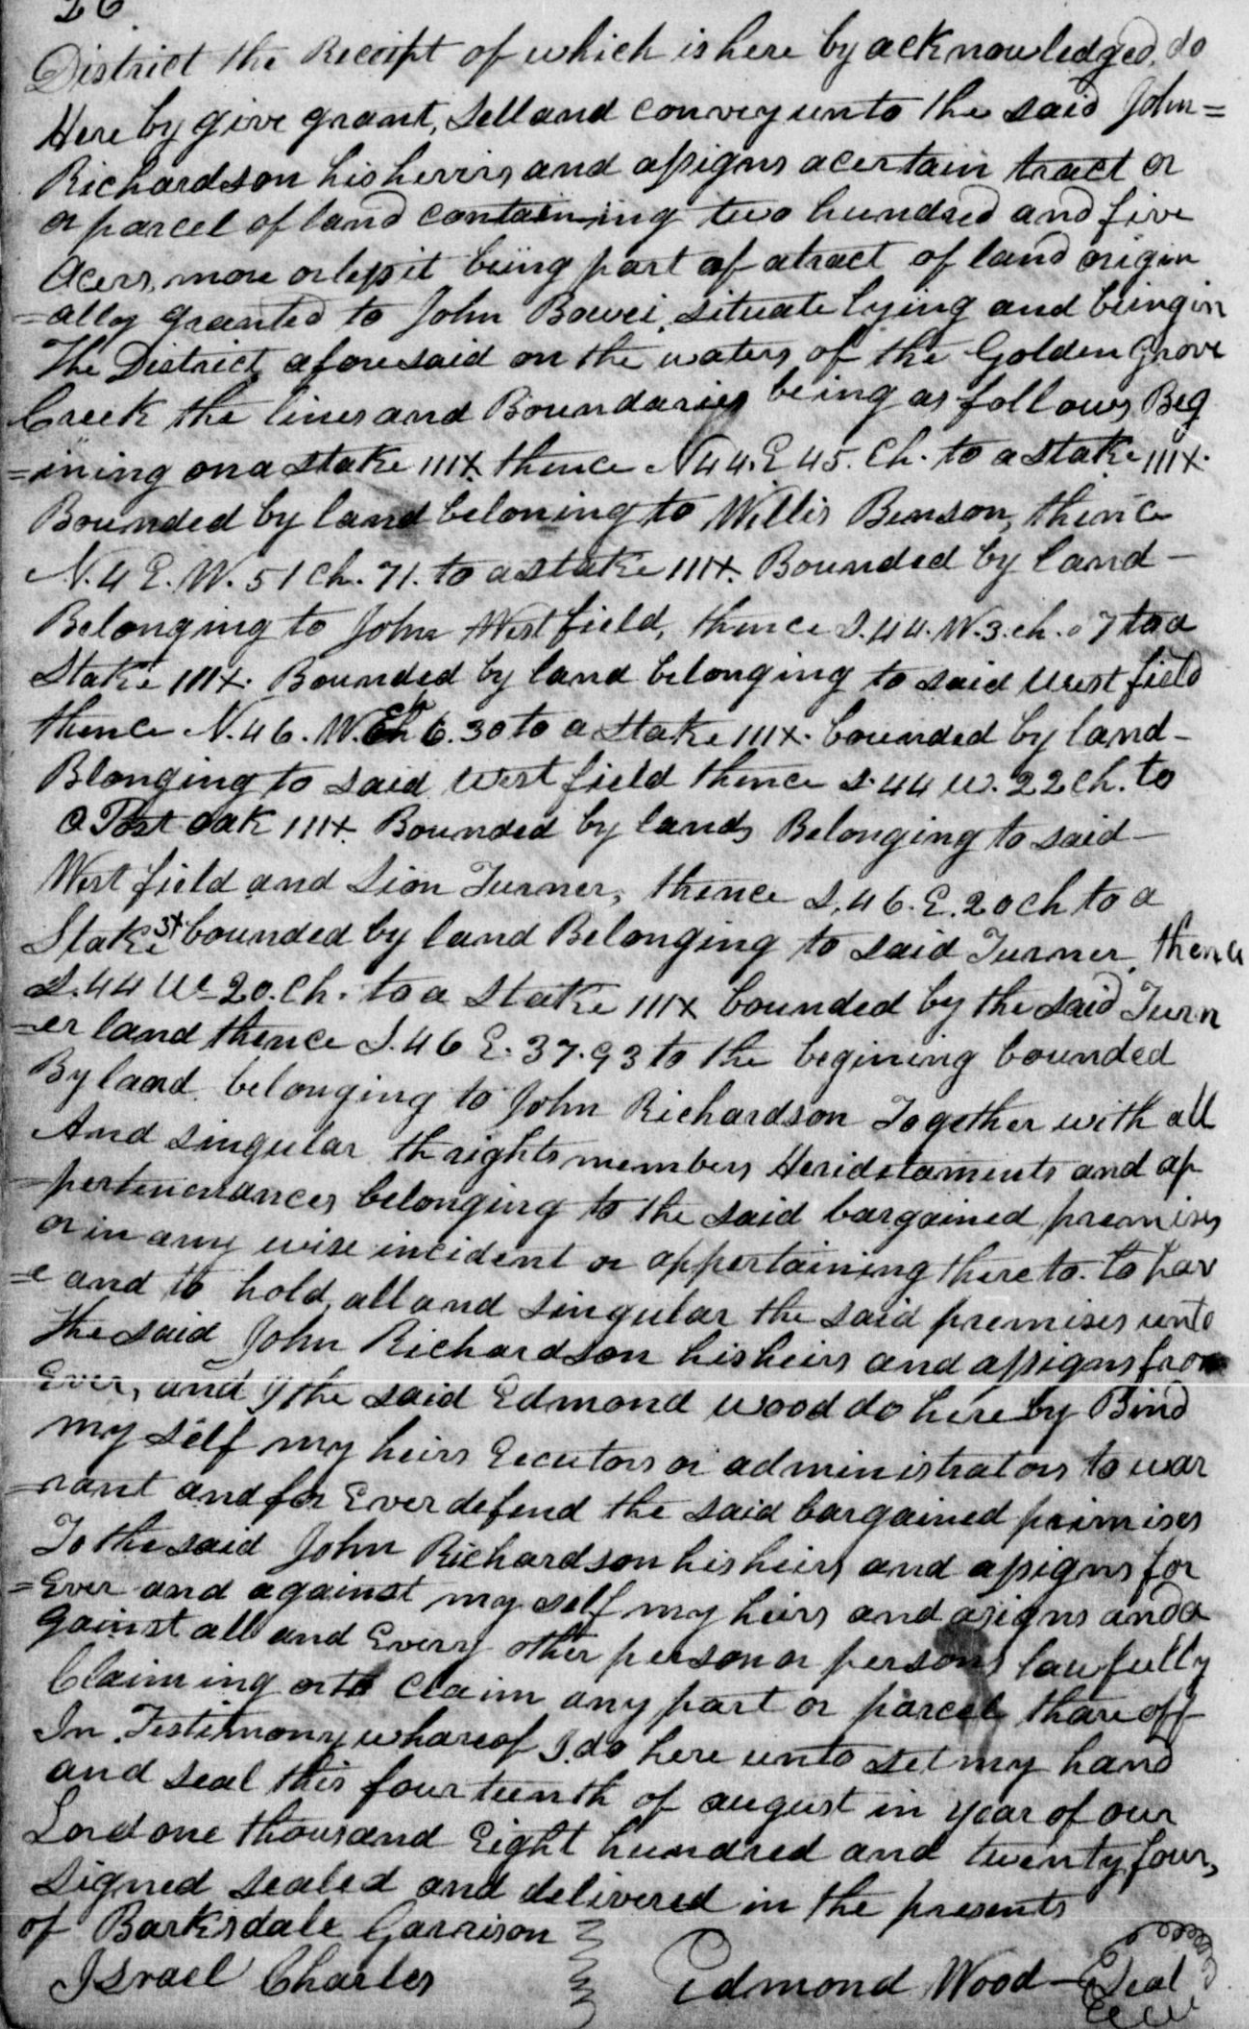 26
District the Receipt of which is here by acknowledged, do
Here by give grant, sell and convey unto the said John=
Richardson his heirs, and assigns a certain tract or
or parcel of land containing two hundred and five
Acers, more or less it being part of a tract of land origin
=ally granted to John Bowei, situate lying and being in
The District aforesaid on the waters of the Golden Grove
Creek the lines and Boundaries being as follows, Beg
=ining on a stake 111X thence N44.E 45. Ch. to a stake 111X.
Bounded by land beloning to Willis Benson, thence
N.4 E. W. 51 Ch. 71. to a stake 111X. Bounded by land-
Belonging to John Westfield, thence S.44. W.3. ch. 07 to a
Stake 111X. Bounded by land belonging to said Westfield
thence N.46. W. Ch 6.30 to a stake 111X. bounded by land-
Blonging to said Westfield thence S.44 W. 22 Ch. to
a Post oak 111X. Bounded by lands Belonging to said-
Westfield and Sion Turner, thence S.46. E. 20 ch to a
Stake 3X bounded by land Belonging to said Turner, thence
S.44 W- 20. Ch. to a Stake 111X bounded by the said Turn
=er land thence S.46 E. 37.93 to the begining bounded
By land belonging to John Richardson Together with all
And singular th rights members Heridetaments and ap
=pertenenances belonging to the said bargained premises
or in any wise incident or appertaining thereto. to hav
=e and to hold, all and singular the said premises unto
the said John Richardson his heirs and assigns from
Ever, and I the said Edmond Wood do here by Bind
my self my heirs Executors or administrators to war
=rant and for Ever defend the said bargained premises
To the said John Richardson his heirs and assigns for
=Ever and against my self my heirs and asigns and a
gainst all and Every other person or persons lawfully
Claiming or to Claim any part or parcel thare off
In Testimony whareof I do here unto set my hand
and seal this fourteenth of august in year of our
Lord one thousand Eight hundred and twenty four,
signed sealed and delivered in the presents
of Barksdale Garrison
Israel Charles Edmond Wood - Seal